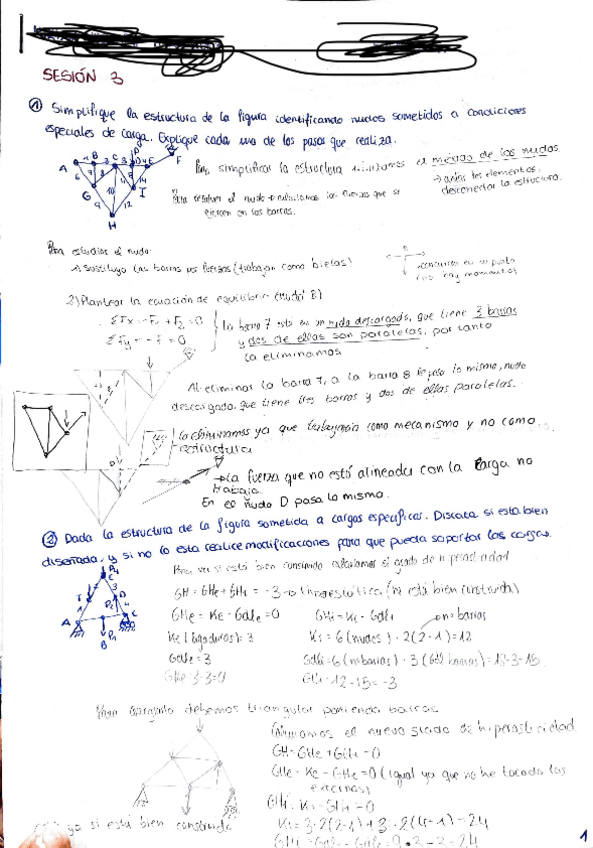 SESIÓN 3
① Simplifique la estructura de la figura identificando nudos sometidos a condiciones
especiales de carga. Explique cada uno de los pasos que realiza.
A B C D E F
G H I
Para simplificar la estructura utilizamos el método de los nudos
→ aislar los elementos,
desconectar la estructura.
Para resolver el nudo → calculamos las fuerzas que se
ejercen en las barras.
Para estudiar el nudo:
1) Sustituyo las barras por fuerzas (trabajan como bielas)
concurren en un punto
(no hay momentos)
2) Plantear la ecuación de equilibrio (nudo B)
ΣFx = -F₁ + F₂ = 0
ΣFy = - F = 0
La barra 7 está en un nudo descargado, que tiene 3 barras
y dos de ellas son paralelas, por tanto
la eliminamos
Al eliminar la barra 7, a la barra 8 le pasa lo mismo, nudo
descargado, que tiene tres barras y dos de ellas paralelas.
la eliminamos ya que trabajaría como mecanismo y no como
estructura
→ La fuerza que no está alineada con la carga no
trabaja.
En el nudo D pasa lo mismo.
② Dada la estructura de la figura sometida a cargas específicas. Discuta si está bien
diseñada, y si no lo está realice modificaciones para que pueda soportar las cargas.
Para ver si está bien construida calculamos su grado de hiperasticidad
GH = GHe + GHi = -3 →
(no está bien construida)
GHe = Ke - Gdle = 0
GHi = Ki - Gdli
nº barras
Ke (ligaduras) = 3
Ki = 6 (nudos) · 2(2-1) = 12
Gdle = 3
Gdli = 6 (nº barras) · 3 (Gdl barras) = 18-3 = 15
GHe = 3-3=0
GHi = 12-15 = -3
debemos triangular poniendo barras
el nuevo grado de hiperasticidad
GH = GHe + GHi = 0
GHe = Ke - GHe = 0 (igual ya que no he tocado las
GHi = Ki - GHi = 0
ya si está bien construida
Ki = 3·2(2-1) + 3·2(4-1) = 24
9·3-3 = 24
1